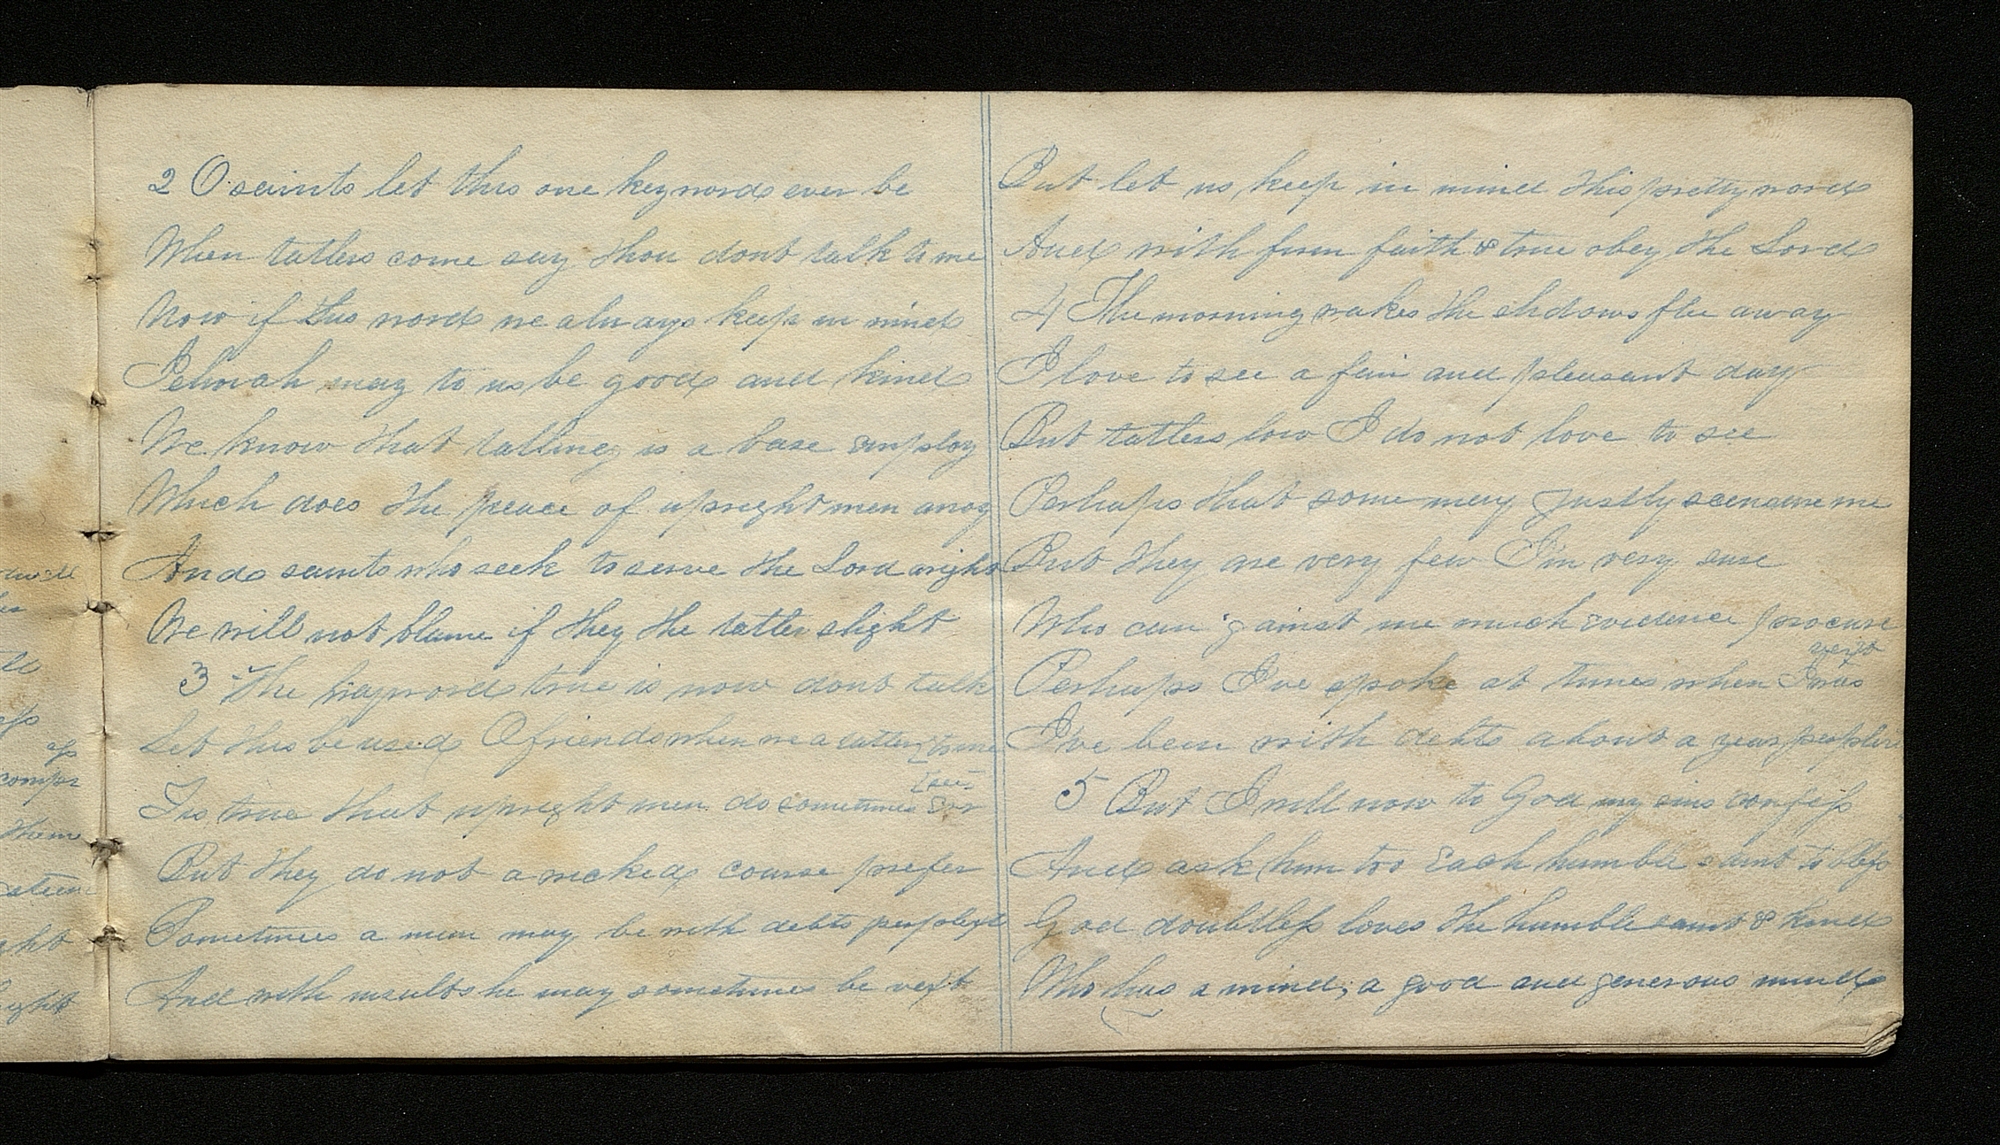 2 O saints let this one keyword ever be
When tatlers come say thou dont talk to me
Now if this word we always keep in mind
Jehovah may to us be good and kind
We know that tatling is a base employ
Which does the peace of upright men anoy
And saints who seek to serve the Lord aright
We will not blame if they the tatler slight
3 The keyword true is now dont talk
Let this be used O friends when we a tatler
[see
Tis true that upright men do sometimes Err
But they do not a wicked course prefer
Sometimes a man may be with debts perplext
And with insults he may sometimes be vext
But let us keep in mind this pretty word
And with firm faith & true obey the Lord
4 The morning makes the shdows flee away
I love to see a fair and pleasant day
But tatlers low I do not love to see
Perhaps that some may justly scencure me
But they are very few I'm very sure
Who can 'gainst me much evidence procure
vext
Perhaps I've spoke at times when I was
I've been with debts about a year perplex
5 But I will now to God my sins confess
And ask him too Each humble saint to bless
God doubtless loves the humble saint & kind
Who has a mind, a good and generous mind
dwell
ght
them
ight